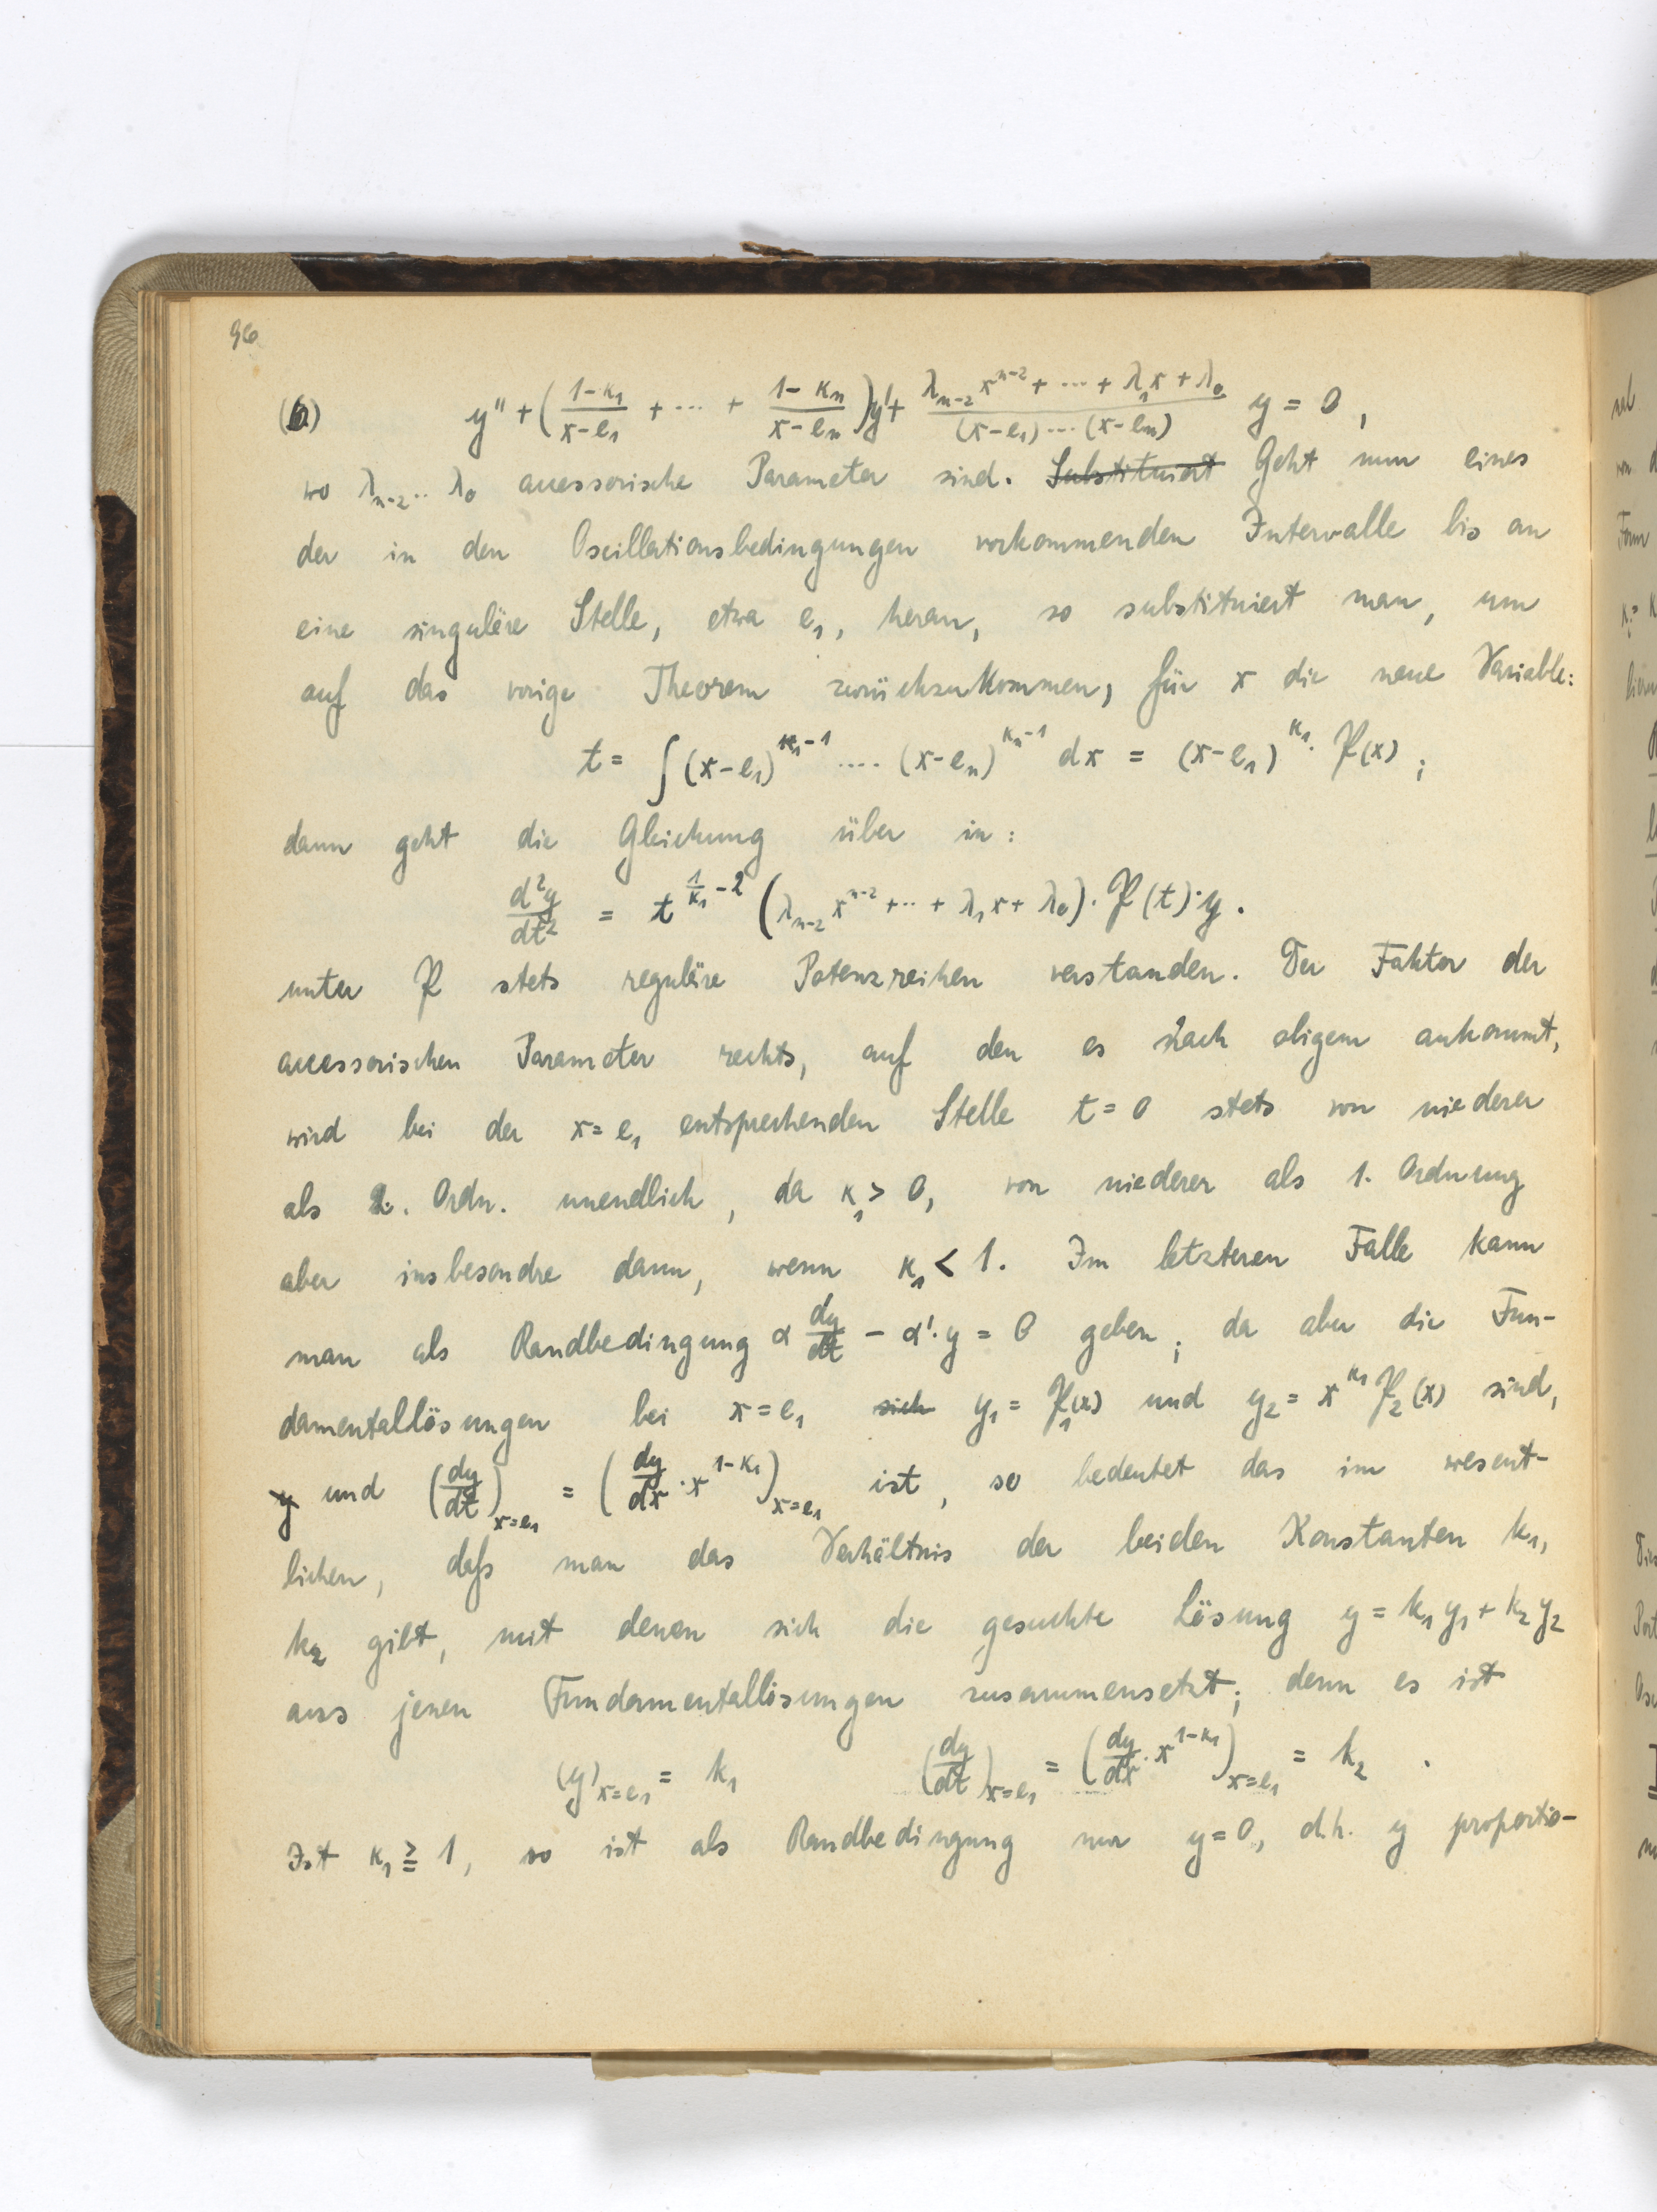 96
(6) y'' + ( (1-κ₁)/(x-e₁) + ... + (1-κₙ)/(x-eₙ) ) y' + (λₙ₋₂ xⁿ⁻² + ... + λ₁x + λ₀)/((x-e₁) ... (x-eₙ)) y = 0,
wo λₙ₋₂ .. λ₀ accessorische Parameter sind. ~~Substituiert~~ Geht nun eines
der in den Oscillationsbedingungen vorkommenden Intervalle bis an
eine singuläre Stelle, etwa e₁, heran, so substituiert man, um
auf das vorige Theorem zurückzukommen, für x die neue Variable:
t = ∫ (x-e₁)^(κ₁-1) .... (x-eₙ)^(κₙ-1) dx = (x-e₁)^(κ₁) · 𝔓(x);
dann geht die Gleichung über in:
d²y/dt² = t^(1/κ₁ - 2) (λₙ₋₂ xⁿ⁻² + .. + λ₁x + λ₀) · 𝔓(t) · y.
unter 𝔓 stets reguläre Potenzreihen verstanden. Der Faktor der
accessorischen Parameter rechts, auf den es nach obigem ankommt,
wird bei der x = e₁ entsprechenden Stelle t = 0 stets von niederer
als 2. Ordn. unendlich, da κ₁ > 0, von niederer als 1. Ordnung
aber insbesondre dann, wenn κ₁ < 1. Im letzteren Falle kann
man als Randbedingung α dy/dt - α'·y = 0 geben; da aber die Fun-
damentallösungen bei x = e₁ ~~sich~~ y₁ = 𝔓₁(x) und y₂ = x^(κ₁) 𝔓₂(x) sind,
~~y~~ und (dy/dt)ₓ₌ₑ₁ = (dy/dx · x^(1-κ₁))ₓ₌ₑ₁ ist, so bedeutet das im wesent-
lichen, daß man das Verhältnis der beiden Konstanten k₁,
k₂ gibt, mit denen sich die gesuchte Lösung y = k₁y₁ + k₂y₂
aus jenen Fundamentallösungen zusammensetzt; denn es ist
(y)ₓ₌ₑ₁ = k₁ (dy/dt)ₓ₌ₑ₁ = (dy/dx · x^(1-κ₁))ₓ₌ₑ₁ = k₂ .
Ist κ₁ ≧ 1, so ist als Randbedingung nur y = 0, d.h. y proportio-